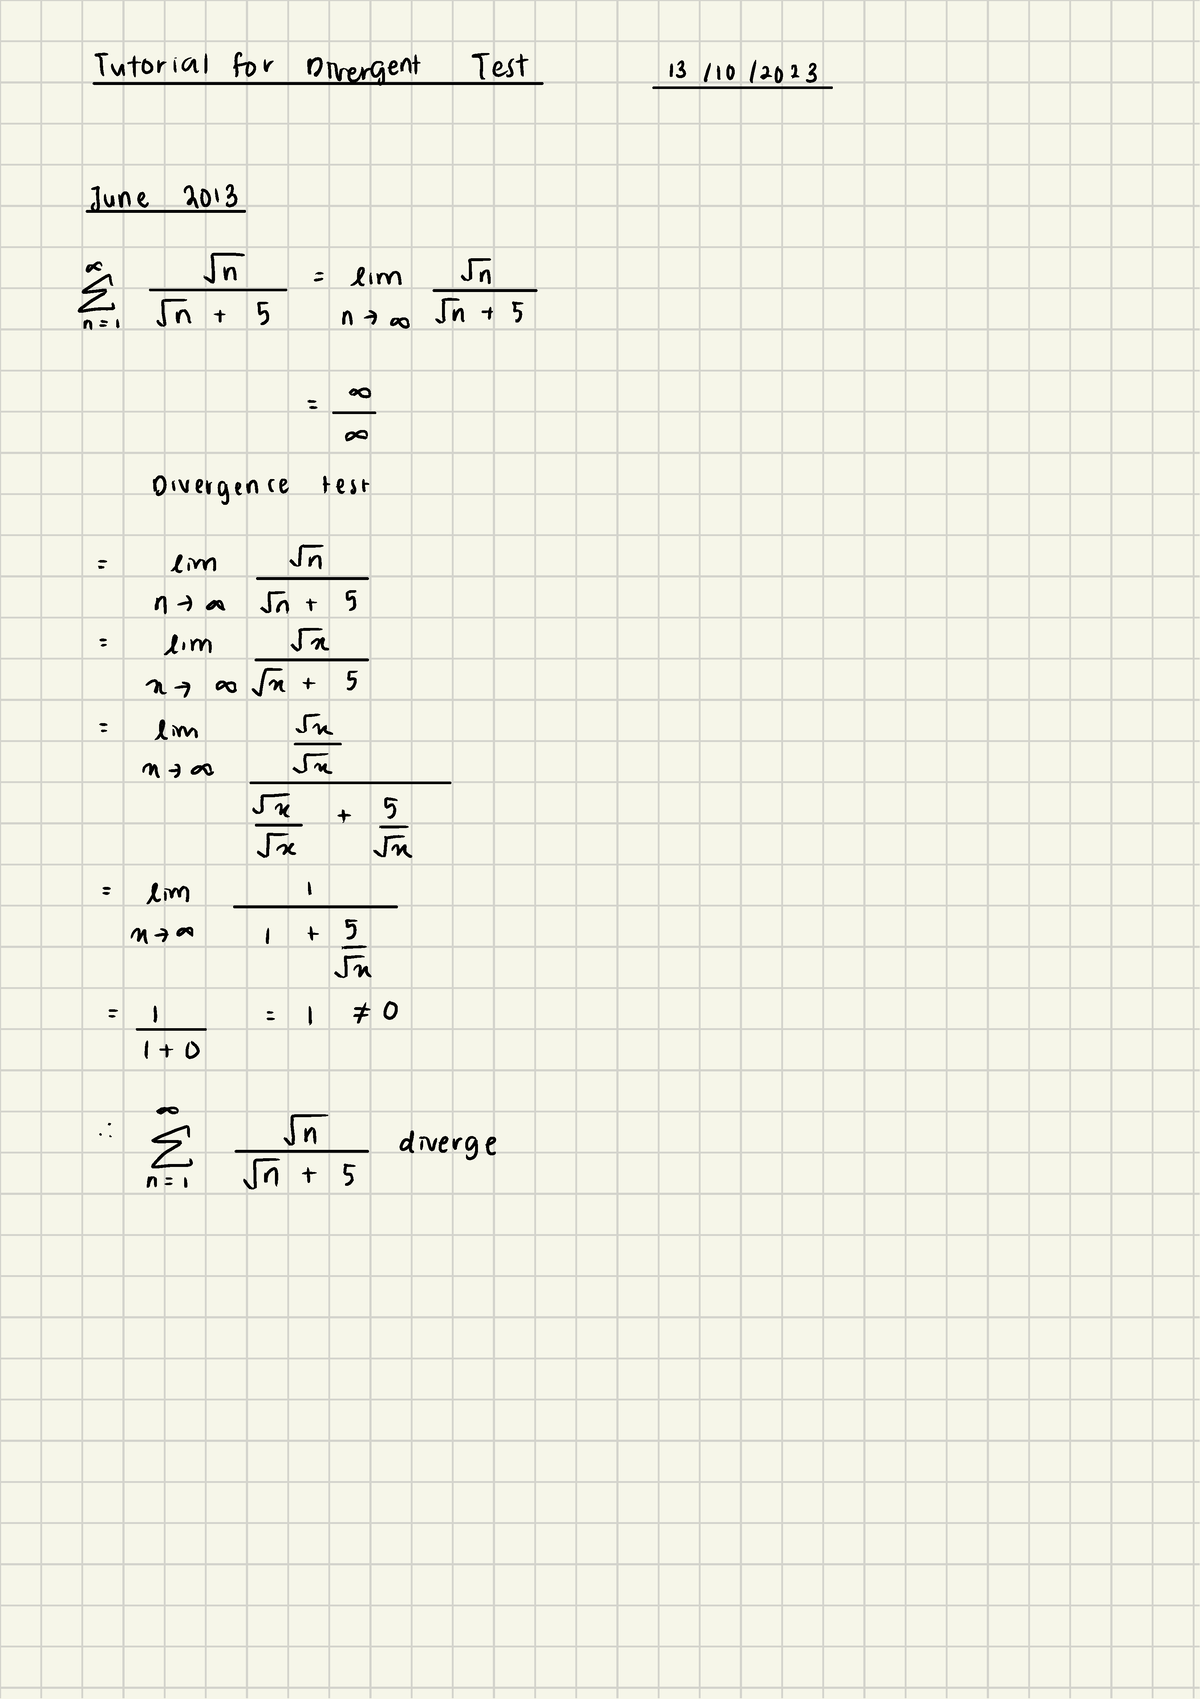 Tutorial for Divergent Test 13/10/2023
June 2013
∞
∑ √n / (√n + 5) = lim √n / (√n + 5)
n=1 n→∞
= ∞/∞
Divergence test
= lim n→∞ √n / (√n + 5)
= lim x→∞ √x / (√x + 5)
= lim x→∞ (√x/√x) / (√x/√x + 5/√x)
= lim x→∞ 1 / (1 + 5/√x)
= 1/(1+0) = 1 ≠ 0
∞
∴ ∑ √n / (√n + 5) diverge
n=1